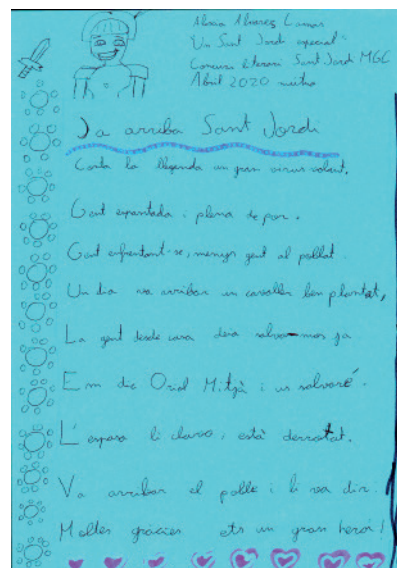 Alexia Alvarez Lamas
"Un Sant Jordi especial"
Concurs literari Sant Jordi MGC
Abril 2020
Ja arriba Sant Jordi
Conta la llegenda un gran virus volant.
Gent espantada i plena de por.
Gent enfrontant-se, menys gent al poblat.
Un dia va arribar un cavaller ben plantat,
La gent desde casa deia salva-nos ja
Em dic Oriol Mitjà i us salvaré.
L'espasa li clavo, està derrotat.
Va arribar el poble i li va dir.
Moltes gràcies ets un gran heroi!